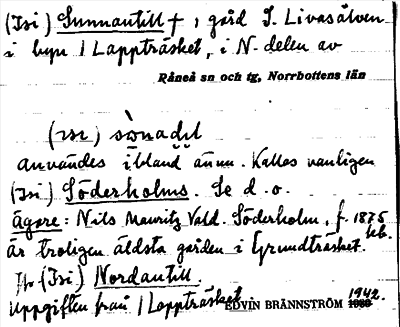 (Isi) Sunnantill f, gård S. Livasälven
i byn / Lappträsket, i N-delen av
Råneå sn och tg, Norrbottens län
(ɪsɪ)
användes ibland ännu. Kallas vanligen
(Isi) Söderholms. Se d. o.
ägare: Nils Mauritz Vald. Söderholm, f. 1875
feb.
är troligen äldsta gården i Grundträsket.
Jfr (Isi) Nordantill.
Uppgiften från / Lappträsket
EDVIN BRÄNNSTRÖM 1942.